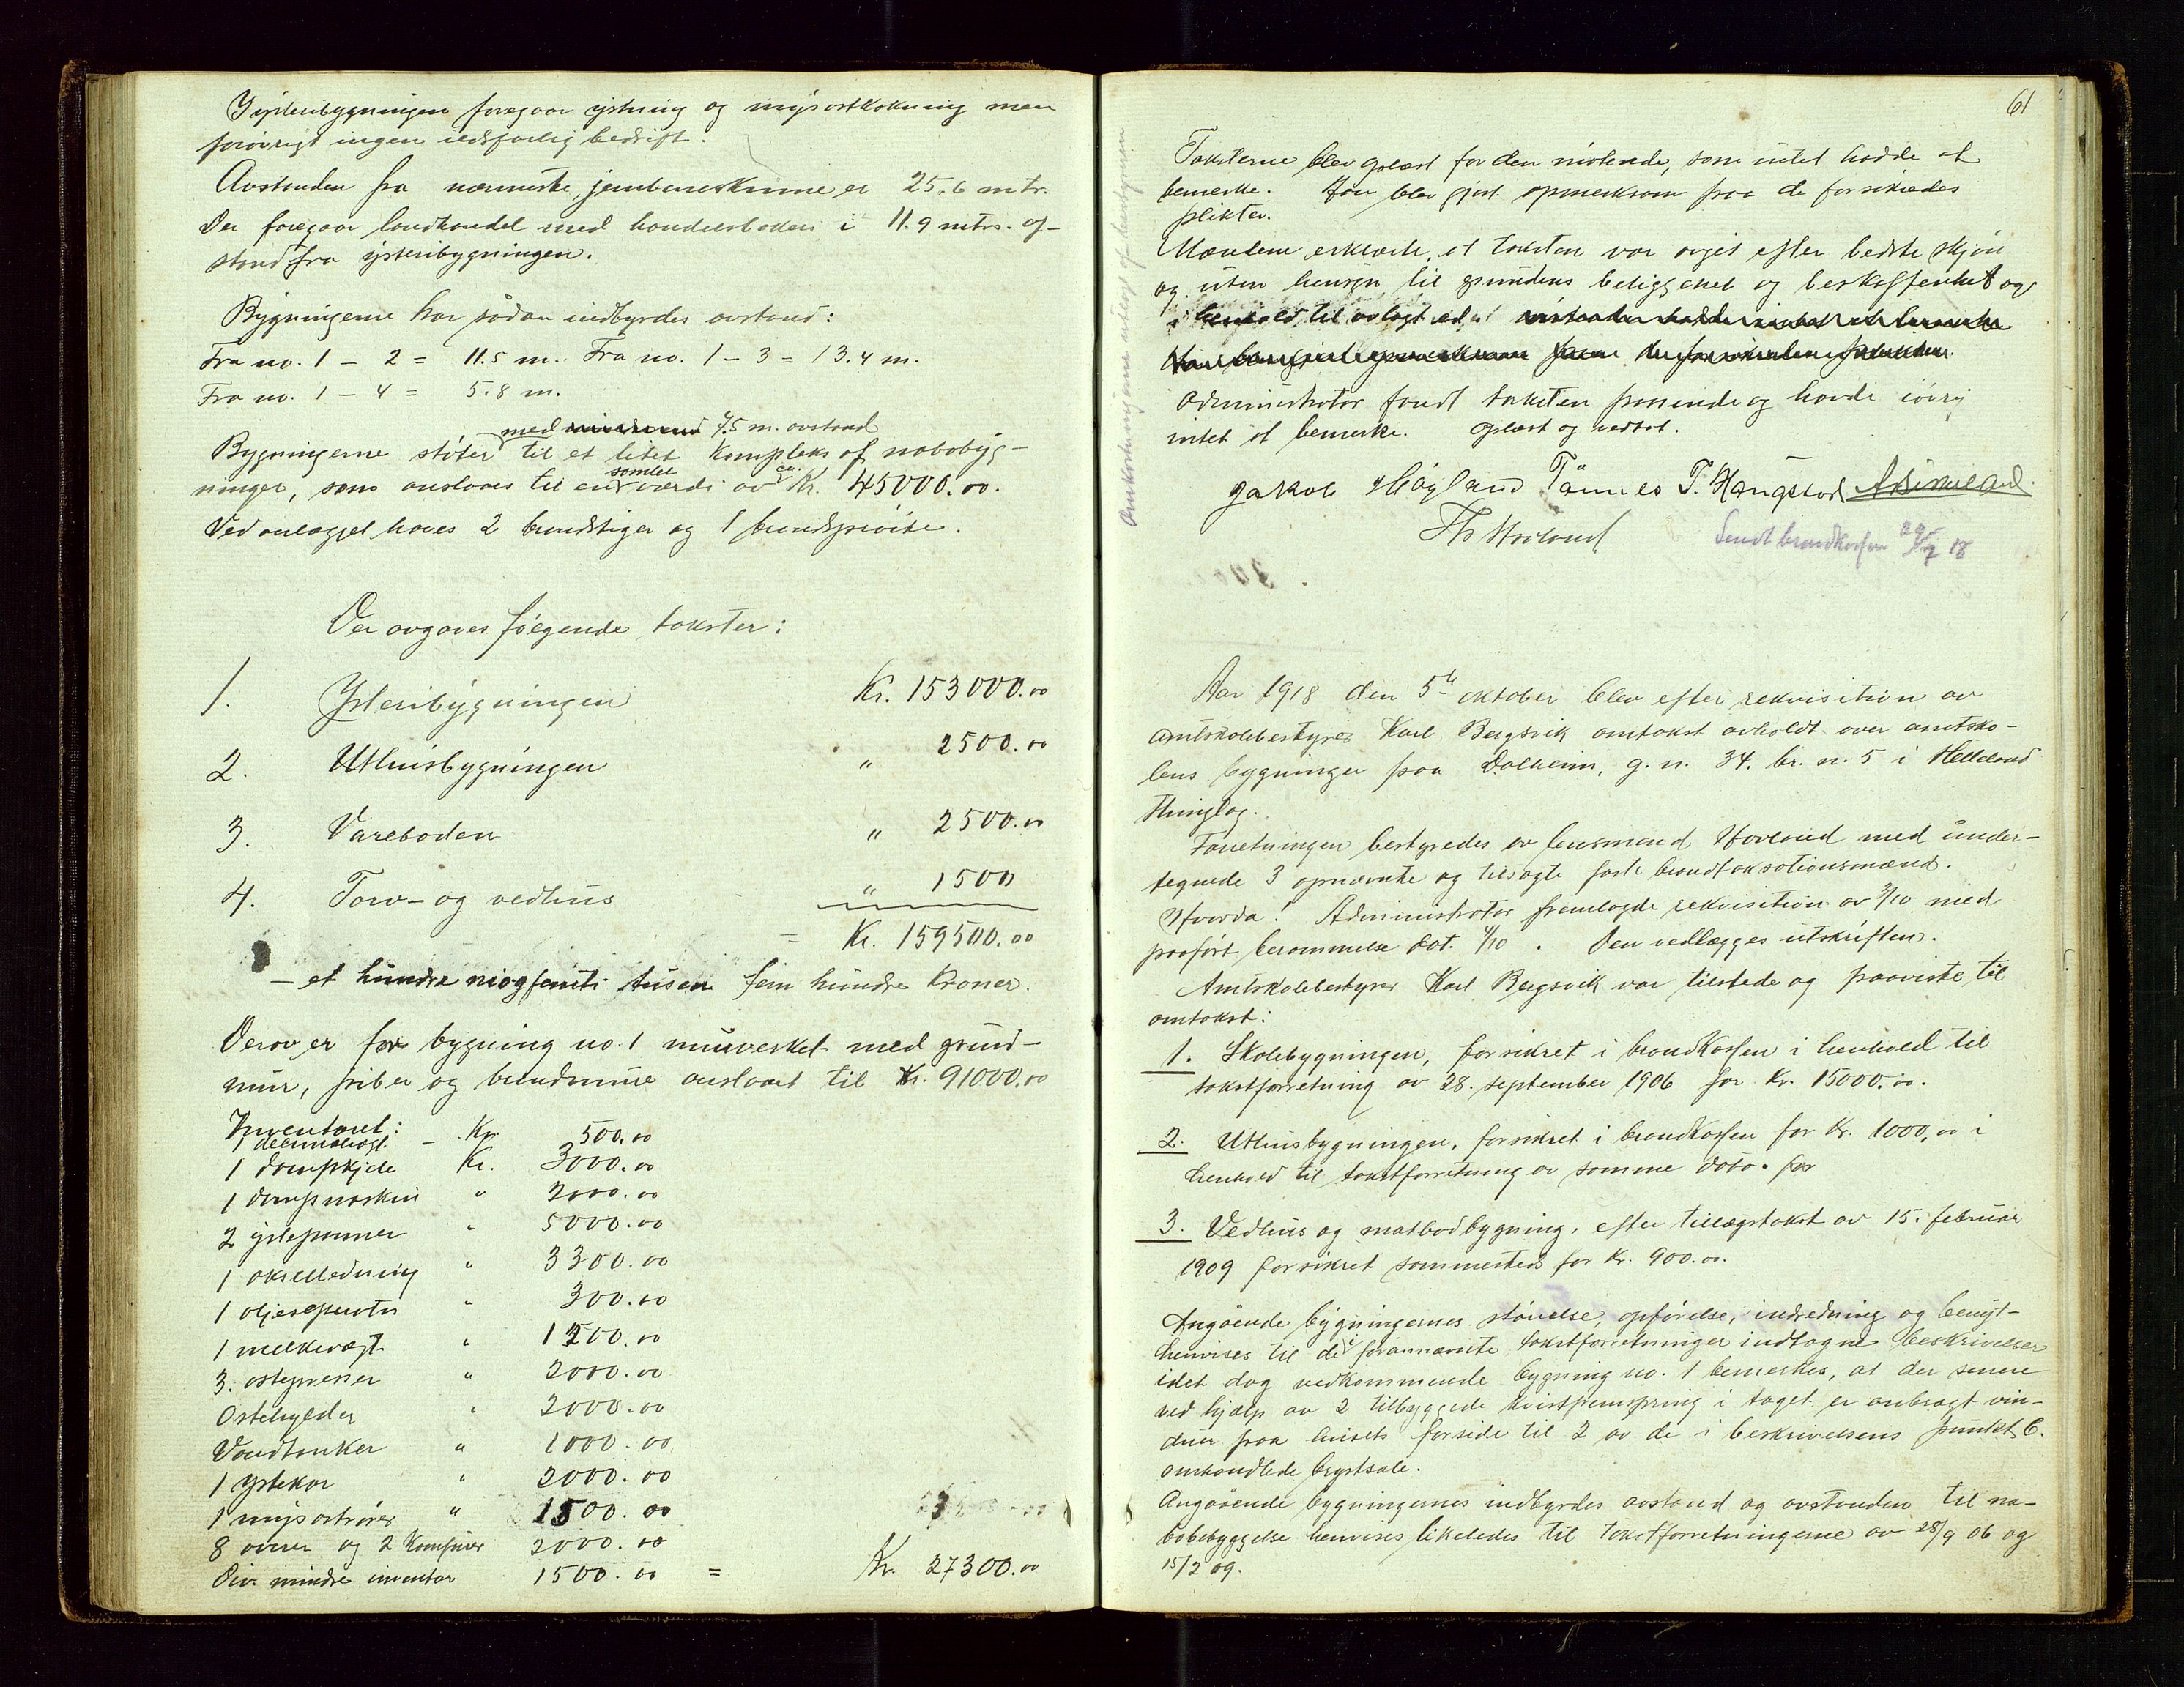 I ysteribygningen foregaar ystning og mysostkokning men
forøvrigt ingen ildsfarlig bedrift.
Avstanden fra nærmeste jernbaneskinne er 25.6 mtr.
Der foregaar landhandel med handelsboden i 11.9 mtrs. af-
stand fra ysteribygningen.
Bygningerne har sådan indbyrdes avstand:
Fra no. 1 – 2 = 11.5 m. Fra no. 1 – 3 = 13.4 m.
Fra no. 1 – 4 = 5.8 m.
med 4.5 m. avstand
Bygningerne støter til et litet kompleks af nabobyg-
samlet ca.
ninger, som anslaaes til en værdi av Kr. 45000.00.
Ved anlægget haves 2 brandstiger og 1 brandsprøite.
Der avgaves følgende takster:
1. Ysteribygningen Kr. 153000.00
2. Uthusbygningen " 2500.00
3. Vareboden " 2500.00
4. Torv- og vedhus " 1500
= Kr. 159500.00
– et hundre niogfemti tusen fem hundre kroner.
Derav er for bygning no. 1 murverket med grund-
mur, piber og brandmure anslaaet til Kr. 91000.00
Inventaret:
1 decimalvægt – Kr. 500.00
1 dampkjele Kr. 3000.00
1 dampmaskin " 2000.00
2 ystepanner " 5000.00
1 akselledning " 3300.00
1 oljeseparator " 300.00
1 melkevægt " 1200.00
3. ostepresser " 2000.00
Ostehylder " 2000.00
Vandtanker " 1000.00
1 ystekar " 2000.00
1 mysostrører " 1500.00
8 ovner og 2 komfurer 2000.00
Div. mindre inventar 1500.00 = Kr. 27300.00
61
Omkostningerne utlagt af bestyreren
Taksterne blev oplæst for den møtende, som intet hadde at
bemerke. Han blev gjort opmerksom paa de forsikredes
plikter.
Mændene erklærte, at taksten var avgit efter bedste skjøn
og uten hensyn til grundens beliggenhet og beskaffenhet og
i henhold til avlagt ed.
Administrator fandt taksten passende og havde iøvrig
intet at bemerke. Oplæst og vedtat.
Jakob Høgland Tønnes T. Haugstad A Birkeland.
Th Hovland
Sendt brandkassen 29/9 18
Aar 1918 den 5te oktober blev efter rekvisition av
amtskolebestyrer Karl Bergsvik omtakst avholdt over amtsko-
lens bygninger paa Dalheim, g.n. 34. br. n. 5 i Helleland
thinglag.
Forretningen bestyredes av lensmand Hovland med under-
tegnede 3 opnævnte og tilsagte faste brandtaksationsmænd.
Hvorda! Administrator fremlagde rekvisition av 3/10 med
paaført berammelse dat. 4/10. Den vedlægges utskriften.
Amtskolebestyrer Karl Bergsvik var tilstede og paaviste til
omtakst:
1. Skolebygningen, forsikret i brandkassen i henhold til
takstforretning av 28. september 1906 for Kr. 15000.00.
2. Uthusbygningen, forsikret i brandkassen for Kr. 1000,00 i
henhold til takstforretning av samme dato. for
3. Vedhus og matbodbygning, efter tillægstakst av 15. februar
1909 forsikret sammesteds for Kr. 900.00.
Angående bygningernes størrelse, opførelse, indredning og benyt-
henvises til de i forannævnte takstforretninger indtagne beskrivelser
idet dog vedkommende bygning no. 1 bemerkes, at der senere
ved hjælp av 2 tilbyggede kvistfremspring i taget er anbragt vin-
duer paa husets forside til 2 av de i beskrivelsens punkt 6.
omhandlede loftsale.
Angående bygningernes indbyrdes avstand og avstanden til na-
bobebyggelse henvises likeledes til takstforretningerne av 28/9 06 og
15/2 09.